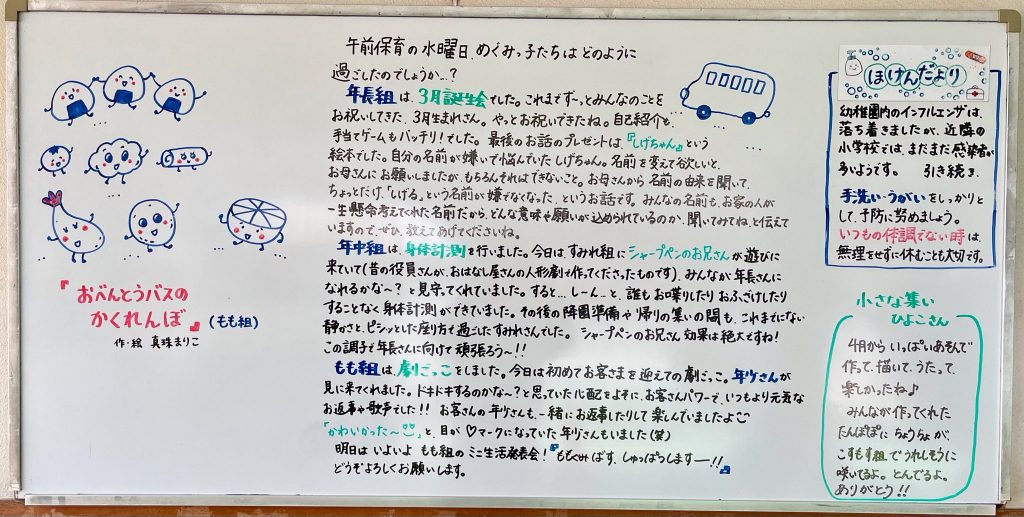 『おべんとうバスの
かくれんぼ』(もも組)
作・絵 真珠まりこ
午前保育の水曜日、めぐみっ子たちはどのように
過ごしたのでしょうか…?
年長組は、3月誕生会でした。これまでずーっとみんなのことを
お祝いしてきた、3月生まれさん。やっとお祝いできたね。自己紹介も、
手当てゲームもバッチリ!でした。最後のお話のプレゼントは、『しげちゃん』という
絵本でした。自分の名前が嫌いで悩んでいたしげちゃん。名前を変えて欲しいと、
お母さんにお願いしましたが、もちろんそれはできないこと。お母さんから名前の由来を聞いて、
ちょっとだけ、「しげる」という名前が嫌でなくなった、というお話です。みんなの名前も、お家の人が
一生懸命考えてくれた名前だから、どんな意味や願いが込められているのか、聞いてみてねと伝えて
いますので、ぜひ、教えてあげてくださいね。
年中組は、身体計測を行いました。今日は、すみれ組にシャープペンのお兄さんが遊びに
来ていて(昔の役員さんが、おはなし屋さんの人形劇で作ってくださったものです)、みんなが年長さんに
なれるかな〜?と見守ってくれていました。すると…しーん…と、誰もお喋りしたりおふざけしたり
することなく身体計測ができていました。その後の降園準備や帰りの集いの間も、これまでにない
静かさと、ピシッとした座り方で過ごしたすみれさんでした。シャープペンのお兄さん効果は絶大ですね!
この調子で年長さんに向けて頑張ろう〜!!
もも組は、劇ごっこをしました。今日は初めてお客さまを迎えての劇ごっこ。年少さんが
見に来てくれました。ドキドキするのかな〜?と思っていた心配をよそに、お客さんパワーで、いつもより元気な
お返事や歌声でした!!お客さんの年少さんも、一緒にお返事したりして楽しんでいましたよ
「かわいかった〜」と、目が♡マークになっていた年少さんもいました(笑)
明日はいよいよもも組のミニ生活発表会!『ももぐみばす、しゅっぱつしま〜す!!』
どうぞよろしくお願いします。
ほけんだより
幼稚園内のインフルエンザは、
落ち着きましたが、近隣の
小学校では、まだまだ感染者が
多いようです。引き続き、
手洗い・うがいをしっかりと
して、予防に努めましょう。
いつもの体調でない時は、
無理をせずに休むことも大切です。
小さな集い
ひよこさん
4月からいっぱいあそんで
作って、描いて、うたって、
楽しかったね♪
みんなが作ってくれた
たんぽぽにちょうちょが、
こすもす組でうれしそうに
咲いてるよ。とんでるよ。
ありがとう!!